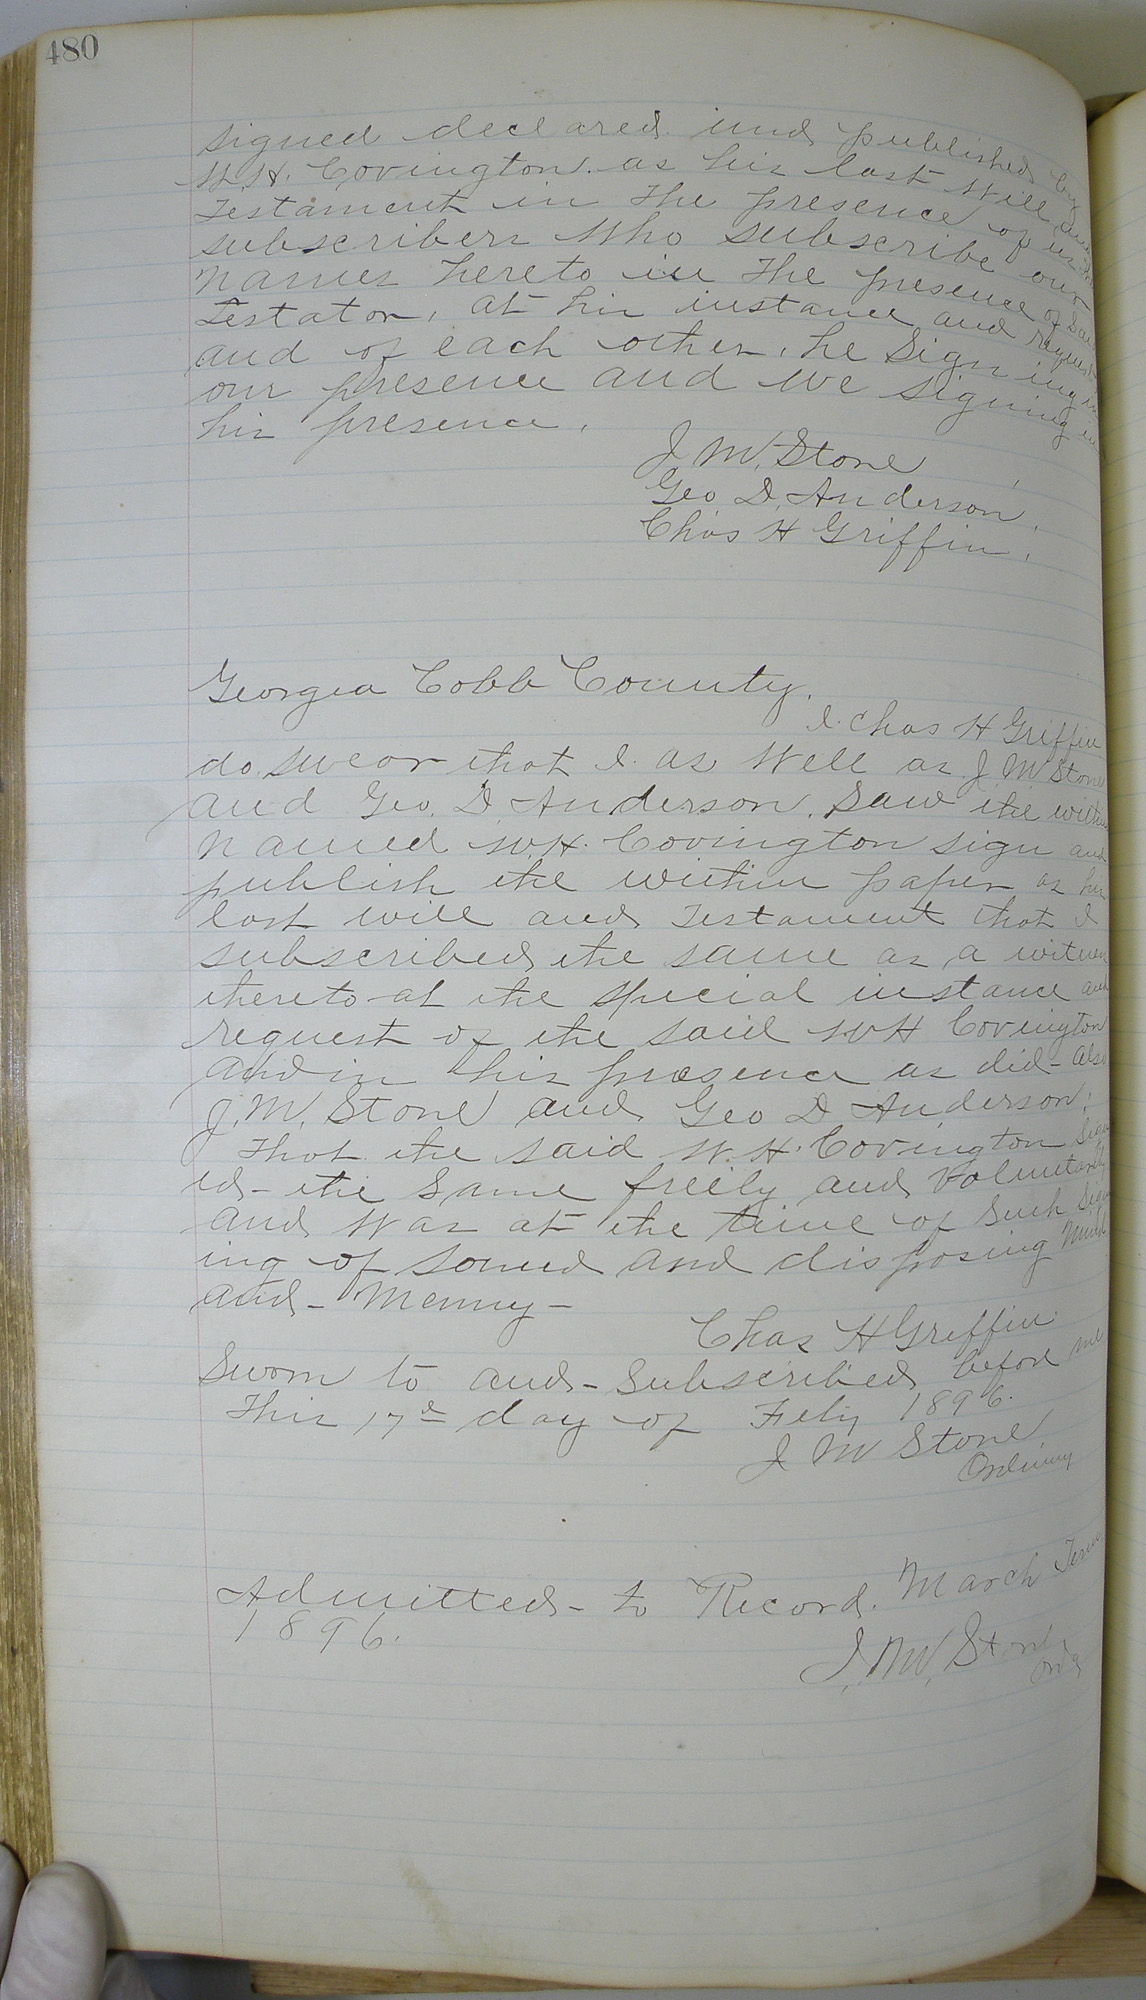 480
signed declared and published by
W.H. Covington as his last will and
Testament in the presence of us the
subscribers who subscribe our
names hereto in the presence of said
Testator, at his instance and request
and of each other, he signing in
our presence and we signing in
his presence.
J M, Stone
Geo D, Anderson,
Chas H Griffin,
Georgia Cobb County.
I. Chas H Griffin
do swear that I. as well as J M Stone
and Geo. D. Anderson, saw the within
named W.H. Covington sign and
publish the within paper as his
last will and Testament that I
subscribed the same as a witness
thereto at the special instance and
request of the said W H Covington
and in his presence as did also
J. M, Stone and Geo D Anderson,
That the said W. H. Covington Sign
ed the same freely and Voluntarily
and was at the time of such sign
ing of sound and disposing mind
and Memry -
Chas H Griffin
Sworn to and subscribed before me
This 17th day of Feby 1896.
J M Stone
Ordinary
Admitted to Record. March Term
1896.
J. M, Stone,
Ordy